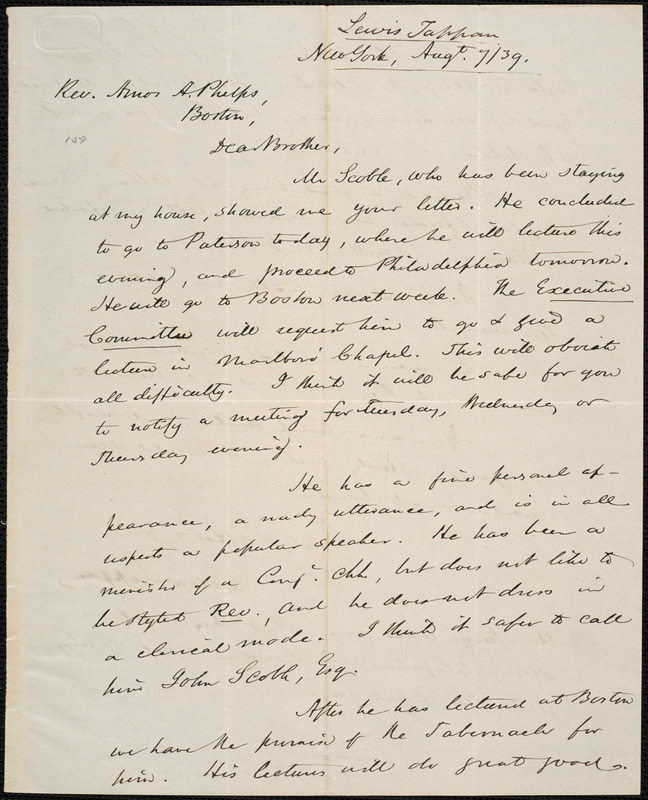 Lewis Tappan
New York, Augt. 7/39.
Rev. Amos A. Phelps,
Boston,
159
Dear Brother,
Mr Scoble, who has been staying
at my house, showed me your letter. He concluded
to go to Paterson to day, where he will lecture this
evening, and proceed to Philadelphia tomorrow.
He will go to Boston next week. The Executive
Committee will request him to go & give a
lecture in Marlboro' Chapel. This will obviate
all difficulty. I think it will be safe for you
to notify a meeting for Tuesday, Wednesday or
Thursday evening.
He has a fine personal ap-
pearance, a ready utterance, and is in all
respects a popular speaker. He has been a
minister of a Congl. Chh, but does not like to
be styled Rev., and he does not dress in
a clerical mode. I think it safer to call
him John Scoble, Esq.
After he has lectured at Boston
we have the promise of the Tabernacle for
him. His lectures will do great good.